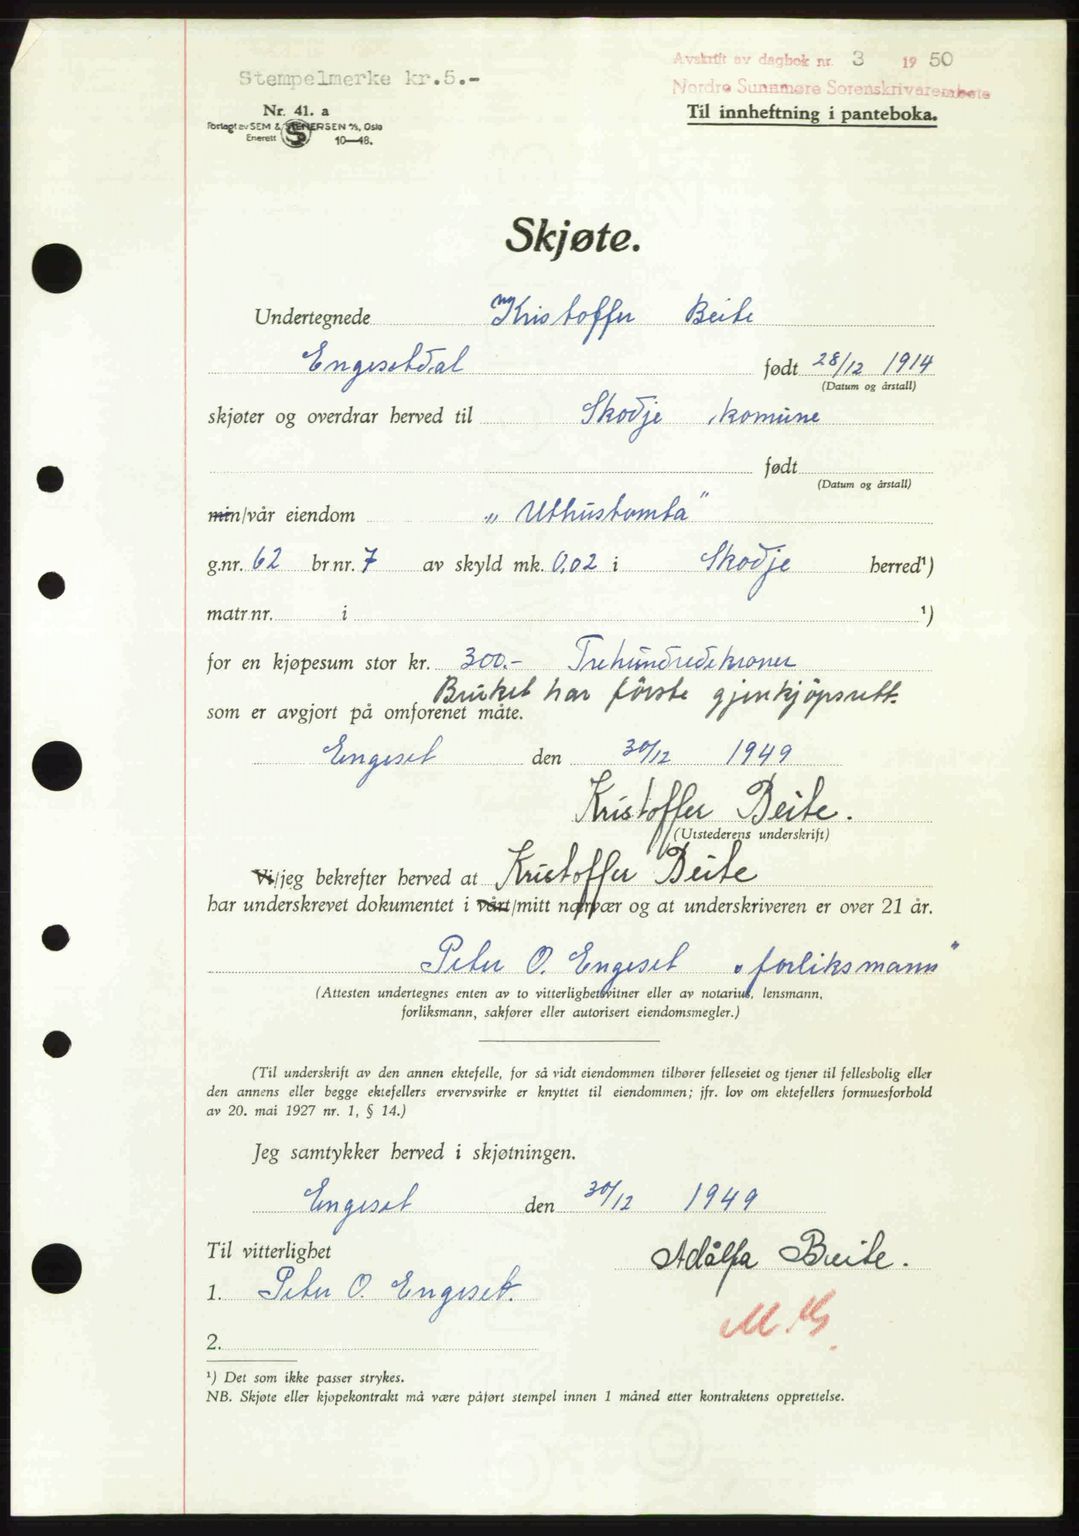 Stempelmerke kr.5.-
Avskrift av dagbok nr. 3 1950
Nordre Sunnmøre Sorenskriverembete
Nr. 41. a
Til innheftning i panteboka.
Forlagt av SEM & STENERSEN A/S, Oslo
Enerett 10—48.
Skjøte.
Undertegnede Kristoffer Beite
Engesetdal født 28/12 1914
(Datum og årstall)
skjøter og overdrar herved til Skodje komune
født
(Datum og årstall)
min/vår eiendom „Uthustomta”
g.nr. 62 br nr. 7 av skyld mk. 0,02 i Skodje herred¹)
matr.nr. i ¹)
for en kjøpesum stor kr. 300.- Trehundredekroner
Bruket har förste gjenkjöpsrett.
som er avgjort på omforenet måte.
Engeset den 30/12 1949
Kristoffer Beite.
(Utstederens underskrift)
Vi/jeg bekrefter herved at Kristoffer Beite
har underskrevet dokumentet i vårt/mitt nærvær og at underskriveren er over 21 år.
Peter O. Engeset „forliksmann”
(Attesten undertegnes enten av to vitterlighetsvitner eller av notarius, lensmann,
forliksmann, sakfører eller autorisert eiendomsmegler.)
(Til underskrift av den annen ektefelle, for så vidt eiendommen tilhører felleseiet og tjener til fellesbolig eller
den annens eller begge ektefellers ervervsvirke er knyttet til eiendommen; jfr. lov om ektefellers formuesforhold
av 20. mai 1927 nr. 1, § 14.)
Jeg samtykker herved i skjøtningen.
Engeset den 30/12 1949
Til vitterlighet
Adålfa Beite.
1. Peter O. Engeset.
M.G.
2.
¹) Det som ikke passer strykes.
NB. Skjøte eller kjøpekontrakt må være påført stempel innen 1 måned etter kontraktens opprettelse.